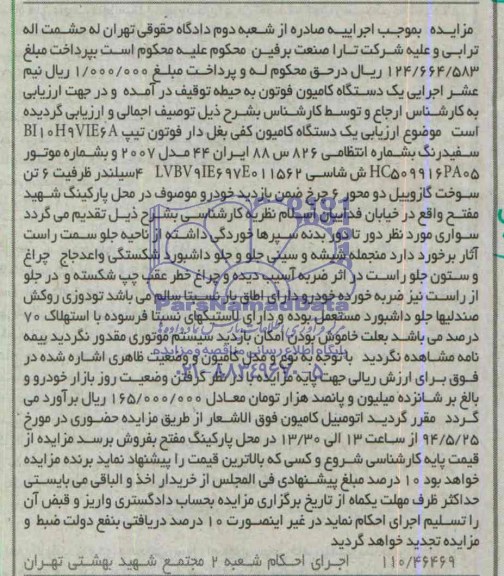 مزایده بموجب اجراییه صادره از شعبه دوم دادگاه حقوقی تهران له حشمت اله
ترابی و علیه شرکت تارا صنعت برفین محکوم علیه محکوم است بپرداخت مبلغ
۱۲۴/۶۶۴/۵۸۳ ریال درحق محکوم له و پرداخت مبلغ ۱/۰۰۰/۰۰۰ ریال نیم
عشر اجرایی یک دستگاه کامیون فوتون به حیطه توقیف در آمده و در جهت ارزیابی
به کارشناس ارجاع و توسط کارشناس بشرح ذیل توصیف اجمالی و ارزیابی گردیده
است موضوع ارزیابی یک دستگاه کامیون کفی بغل دار فوتون تیپ BI۱۰H۹VIE۶A
سفیدرنگ بشماره انتظامی ۸۲۶ س ۸۸ ایران ۴۴ مدل ۲۰۰۷ و بشماره موتور
HC۵۰۹۹۱۶PA۰۵ ش شاسی LVBV۹IE۶۹۷E۰۱۱۵۶۲ ۴سیلندر ظرفیت ۶ تن
سوخت گازوییل دو محور ۶ چرخ ضمن بازدید خودرو موصوف در محل پارکینگ شهید
مفتح واقع در خیابان فدائیان اسلام نظریه کارشناسی بشرح ذیل تقدیم می گردد
سواری مورد نظر دور تا دور بدنه سپرها خوردگی داشته از ناحیه جلو سمت راست
آثار برخورد دارد منجمله شیشه و سینی جلو و جلو داشبورد شکستگی واعدجاج چراغ
و ستون جلو راست در اثر ضربه آسیب دیده و چراغ خطر عقب چپ شکسته و در جلو
از راست نیز ضربه خورده خودرو دارای اطاق بار نسبتا سالم می باشد تودوزی روکش
صندلیها جلو داشبورد مستعمل بوده و دارای لاستیکهای نسبتا فرسوده با استهلاک ۷۰
درصد می باشد بعلت خاموش بودن امکان بازدید سیستم موتوری مقدور نگردید بیمه
نامه مشاهده نگردید با توجه به نوع و مدل کامیون و وضعیت ظاهری اشاره شده در
فوق برای ارزش ریالی جهت پایه مزایده با در نظر گرفتن وضعیت روز بازار خودرو و
بالغ بر شانزده میلیون و پانصد هزار تومان معادل ۱۶۵/۰۰۰/۰۰۰ ریال برآورد می
گردد مقرر گردید اتومبیل کامیون فوق الاشعار از طریق مزایده حضوری در مورخ
۹۴/۵/۲۵ از ساعت ۱۳ الی ۱۳/۳۰ در محل پارکینگ مفتح بفروش برسد مزایده از
قیمت پایه کارشناسی شروع و کسی که بالاترین قیمت را پیشنهاد نماید برنده مزایده
خواهد بود ۱۰ درصد مبلغ پیشنهادی فی المجلس از خریدار اخذ و الباقی می بایستی
حداکثر ظرف مهلت یکماه از تاریخ برگزاری مزایده بحساب دادگستری واریز و قبض آن
را تسلیم اجرای احکام نماید در غیر اینصورت ۱۰ درصد دریافتی بنفع دولت ضبط و
مزایده تجدید خواهد گردید
۱۱۰/۴۶۴۶۹ اجرای احکام شعبه ۲ مجتمع شهید بهشتی تهران
ParsNamadData
پایگاه اطلاع رسانی مناقصه و مزایده
۰۲۱-۸۸۳۴۹۶۷۰-۵